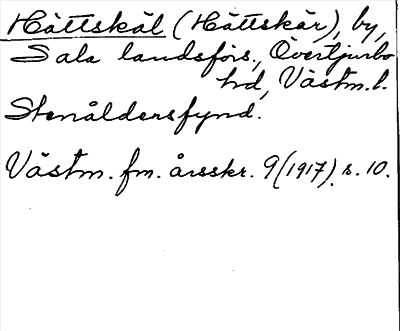 Hättskäl (Hättskär), by,
Sala landsförs., Övertjurbo
hd, Västm. l.
Stenåldersfynd.
Västm. fm. årsskr. 9 (1917), s. 10.